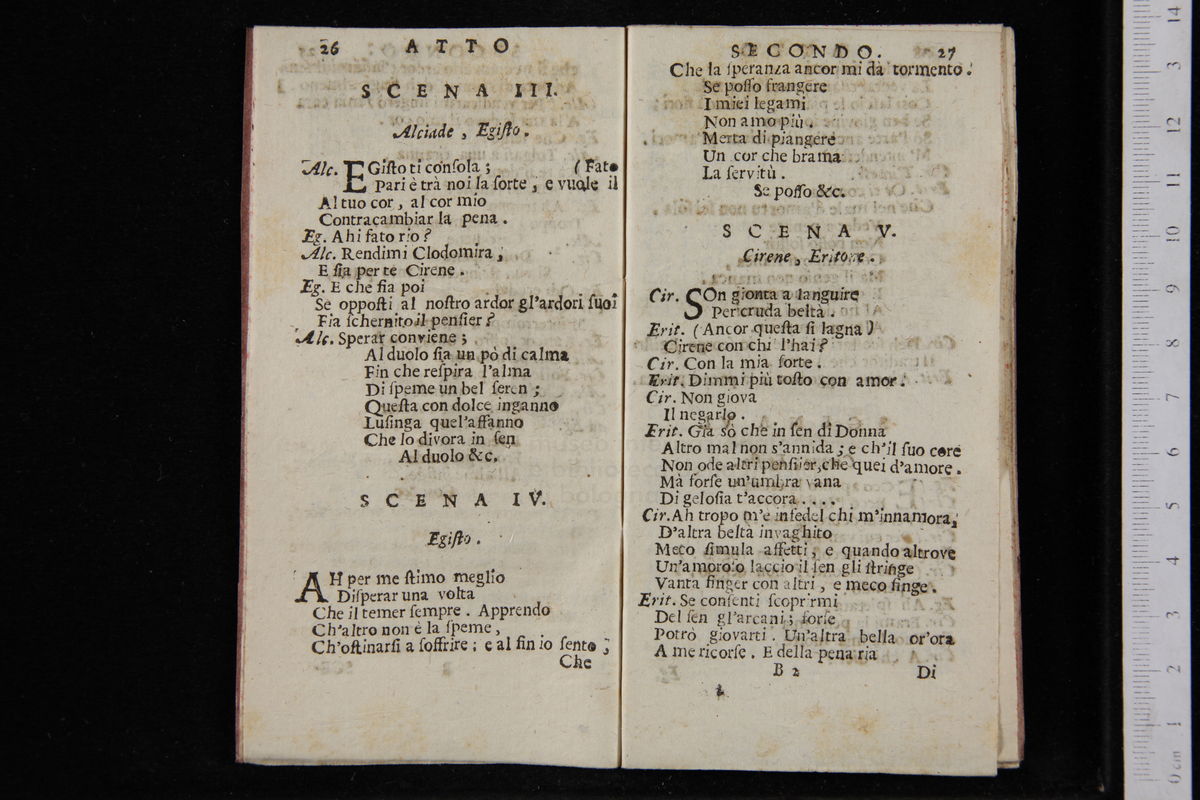 26 ATTO
SCENA III.
Alciade, Egisto.
Alc. EGisto ti consola; (Fato
Pari è trà noi la sorte, e vuole il
Al tuo cor, al cor mio
Contracambiar la pena.
Eg. Ahi fato rio?
Alc. Rendimi Clodomira,
E sia per te Cirene.
Eg. E che sia poi
Se opposti al nostro ardor gl'ardori suoi
Fia schernito il pensier?
Alc. Sperar conviene;
Al duolo sia un pò di calma
Fin che respira l'alma
Di speme un bel seren;
Questa con dolce inganno
Lusinga quel'affanno
Che lo divora in sen
Al duolo &c.
SCENA IV.
Egisto.
AH per me stimo meglio
Disperar una volta
Che il temer sempre. Apprendo
Ch'altro non è la speme,
Ch'ostinarsi a soffrire; e al fin io sento;
Che
SECONDO. 27
Che la speranza ancor mi dà tormento.
Se posso frangere
I miei legami
Non amo più.
Merta di piangere
Un cor che brama
La servitù.
Se posso &c.
SCENA V.
Cirene, Eritore.
Cir. SOn gionta a languire
Per cruda beltà.
Erit. (Ancor questa si lagna)
Cirene con chi l'hai?
Cir. Con la mia sorte.
Erit. Dimmi più tosto con amor.
Cir. Non giova
Il negarlo.
Erit. Già sò che in sen di Donna
Altro mal non s'annida; e ch'il suo core
Non ode altri pensiier, che quei d'amore.
Mà forse un'umbra vana
Di gelosia t'accora....
Cir. Ah tropo m'e infedel chi m'innamora,
D'altra beltà invaghito
Meco simula affetti, e quando altrove
Un'amoroso laccio il sen gli stringe
Vanta finger con altri, e meco finge.
Erit. Se consenti scoprirmi
Del sen gl'arcani; forse
Potrò giovarti. Un'altra bella or'ora
A me ricorse. E della pena ria
B 2 Di